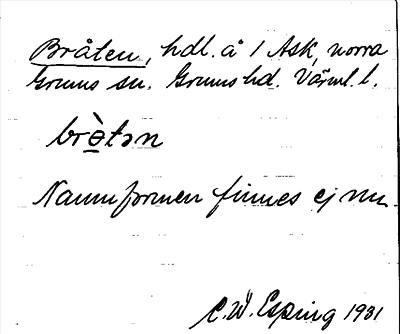 Bråten, hdl. å 1 Ask, norra
Grums sn. Grums hd. Värml. l.
brò̲tən
Namnformen finnes ej nu.
C. W. Esping 1931